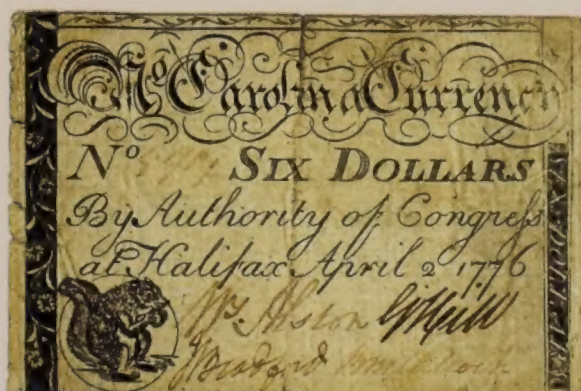 No Carolina Currency
No SIX DOLLARS
By Authority of Congress
at Halifax April 2 1776
Ws. Alston G Hill
J Bradford